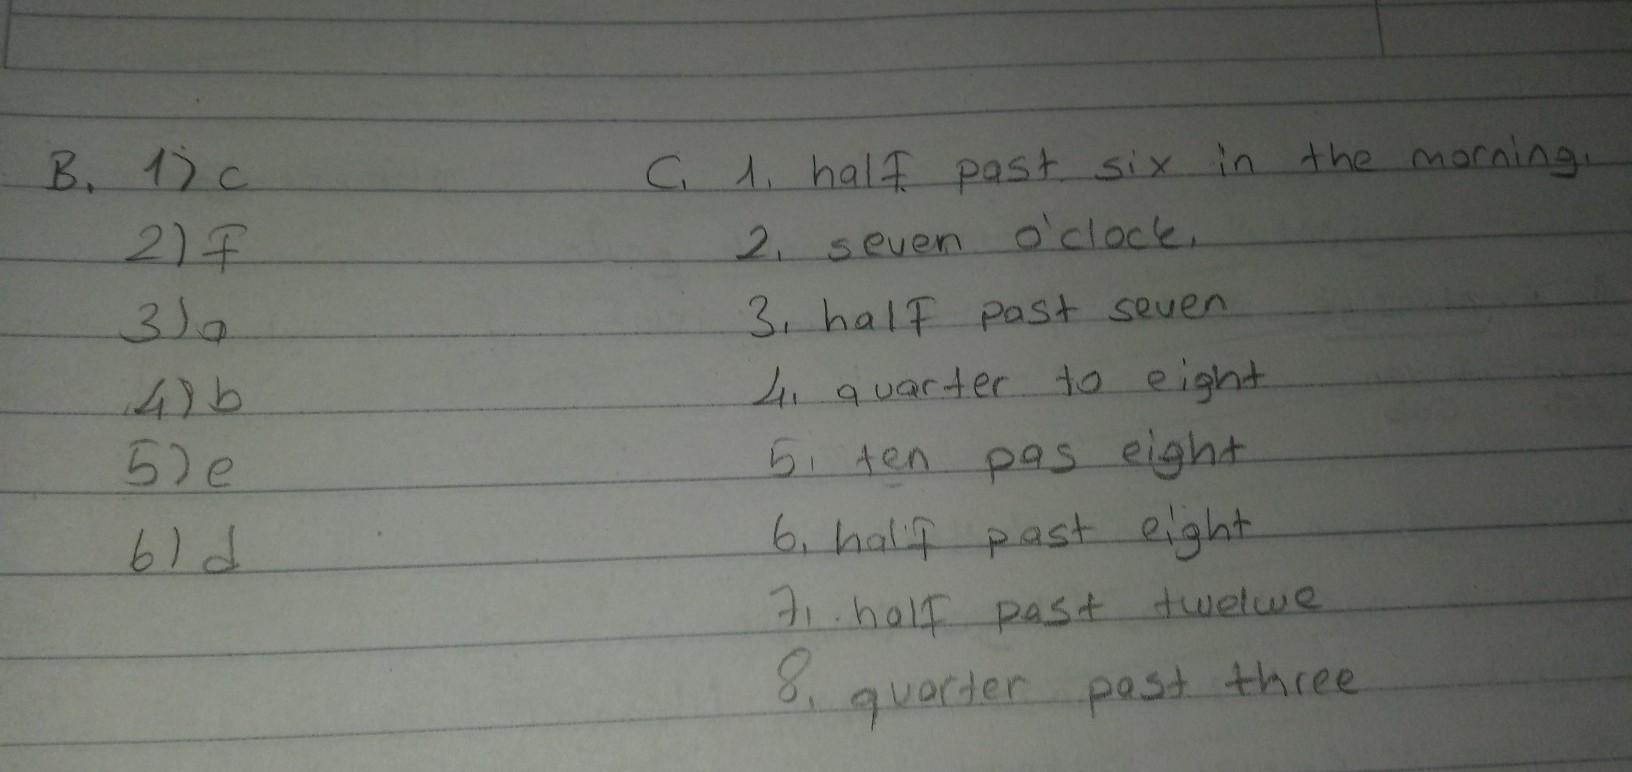 B. 1) c
2) f
3) a
4) b
5) e
6) d
C. 1. half past six in the morning.
2. seven o'clock.
3. half past seven
4. quarter to eight
5. ten pas eight
6. half past eight
7. half past twelwe
8. quarter past three